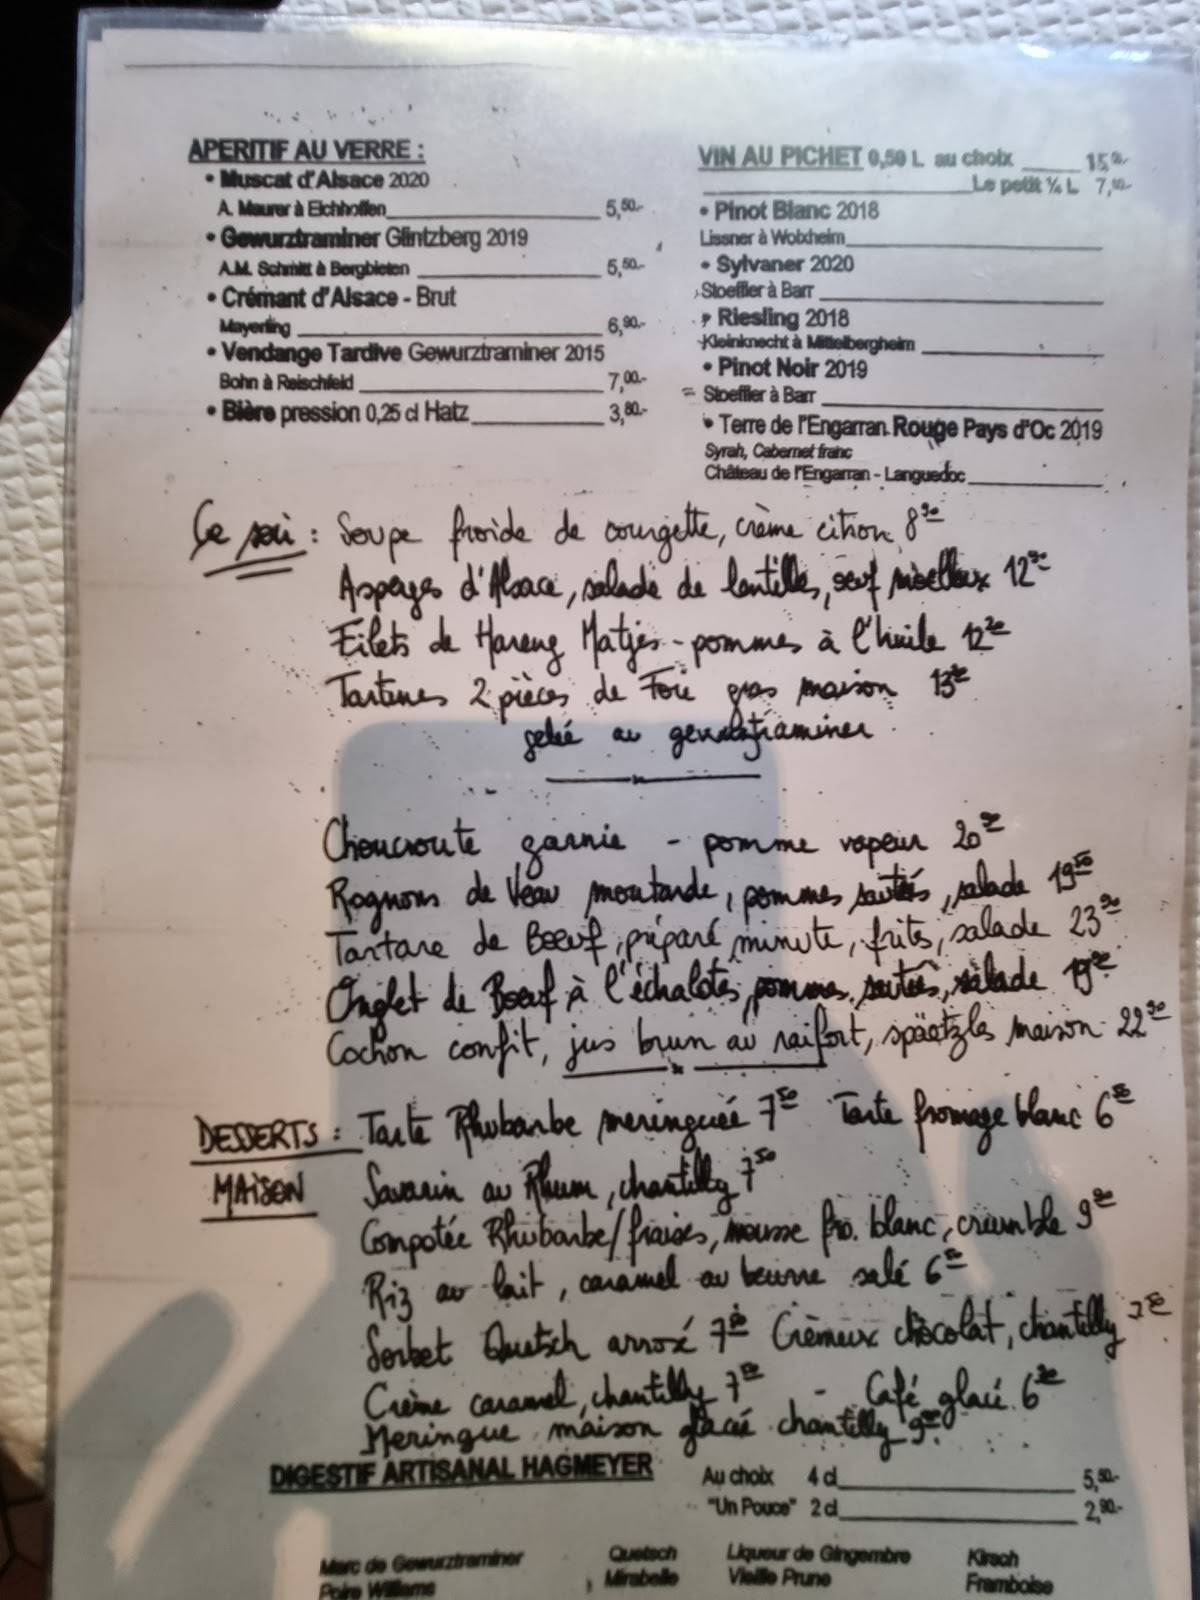 APERITIF AU VERRE :
• Muscat d'Alsace 2020
A. Maurer à Eichhoffen 5,50.-
• Gewurztraminer Glintzberg 2019
A.M. Schmitt à Bergbieten 5,50.-
• Crémant d'Alsace - Brut
Mayerling 6,90.-
• Vendange Tardive Gewurztraminer 2015
Bohn à Reischfeld 7,00.-
• Bière pression 0,25 cl Hatz 3,80.-
VIN AU PICHET 0,50 L au choix 15
Le petit ¼ L 7
• Pinot Blanc 2018
Lissner à Wolxheim
• Sylvaner 2020
Stoeffler à Barr
• Riesling 2018
Kleinknecht à Mittelbergheim
• Pinot Noir 2019
Stoeffler à Barr
• Terre de l'Engarran Rouge Pays d'Oc 2019
Syrah, Cabernet franc
Château de l'Engarran - Languedoc
Ce soir : Soupe froide de courgette, crème citron 8 90
Asperges d'Alsace, salade de lentilles, oeuf moelleux 12 90
Filets de Hareng Matjes - pommes à l'huile 12
Tartines 2 pièces de Foie gras maison 13
gelée au gewurztraminer
Choucroute garnie - pomme vapeur 20 90
Rognons de Veau moutarde, pommes sautées, salade 19 50
Tartare de Boeuf, préparé minute, frites, salade 23 90
Onglet de Boeuf à l'échalotes, pommes sautées, salade 19
Cochon confit, jus brun au raifort, spaëtzles maison 22 90
DESSERTS : Tarte Rhubarbe meringuée 7 50 Tarte fromage blanc 6 50
MAISON Savarin au Rhum, chantilly 7 50
Compotée Rhubarbe/fraises, mousse fro. blanc, crumble 9
Riz au lait, caramel au beurre salé 6 50
Sorbet Quetsch arrosé 7 Crèmeux chocolat, chantilly 7 50
Crème caramel, chantilly 7 50 - Café glacé 6
Meringue maison glacée chantilly 9
DIGESTIF ARTISANAL HAGMEYER
Au choix 4 cl 5,50.-
"Un Pouce" 2 cl 2,90.-
Marc de Gewurztraminer Quetsch Liqueur de Gingembre Kirsch
Poire Williams Mirabelle Vieille Prune Framboise